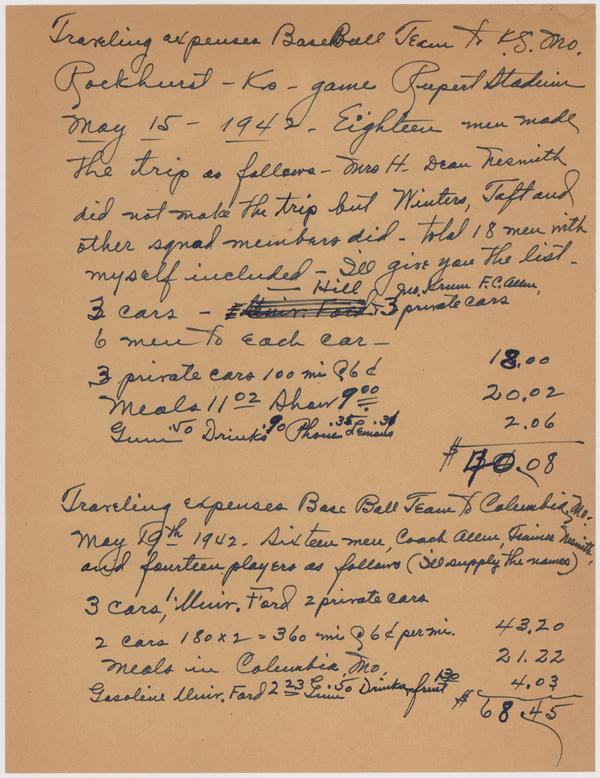 Traveling expenses BaseBall Team to K.S. Mo.
Rockhurst - Ks - game Rupert Stadium
May 15 - 1942. Eighteen men made
the trip as follows - Mrs H. Dean Nesmith
did not make the trip but Winters, Taft and
other squad members did - total 18 men with
myself included - I'll give you the list -
Hill Jno. F.C. Allen,
3 cars - Univ. Ford + 3 private cars
6 men to each car -
3 private cars 100 mi @ 6¢ 18.00
Meals 11 02 Show 9 00 20.02
Gum .50 Drinks 90 Phone .35 Lemons .31 2.06
$ 40.08
Traveling expenses Base Ball Team to Columbia, Mo.
May 19th 1942. Sixteen men, Coach Allen, Trainer Nesmith,
and fourteen players as follows (I'll supply the names)
3 cars, 1 Univ. Ford 2 private cars
2 cars 180 x 2 = 360 mi @ 6¢ per mi. 43.20
Meals in Columbia, Mo. 21.22
Gasoline Univ. Ford 2 23 Gum .50 Drinks, fruit 1 30 4.03
$ 68.45